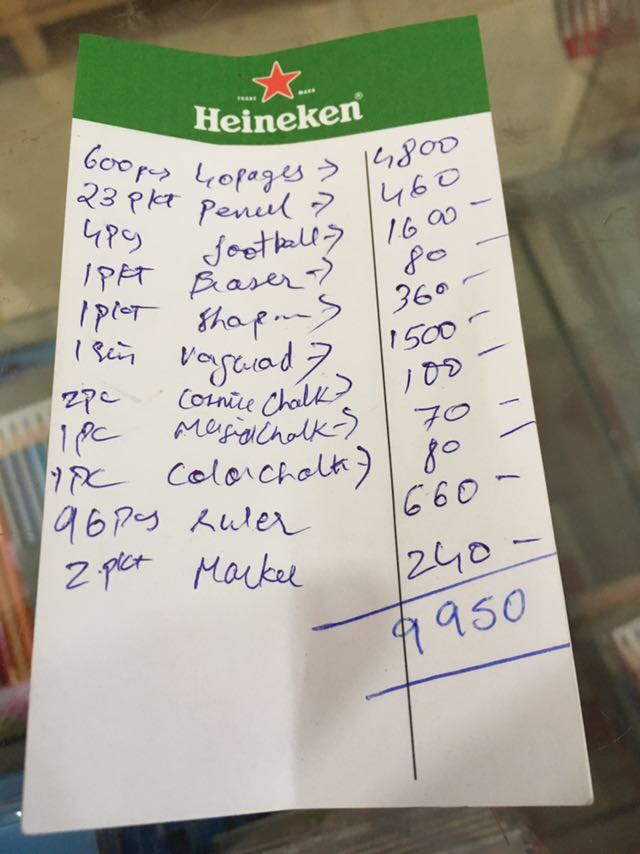 TRADE MARK
Heineken®
600 pcs 40pages → 4800
23 pkt Pencil → 460
4pcs football → 1600 -
1 PKT Eraser → 80 -
1 pkt Shap → 360 -
1 1500 -
2pc Cosmic Chalk → 100 -
1 PC Magic Chalk → 70 -
1 PC Color Chalk → 80 -
96 Pcs Ruler 660 -
2. pkt Marker 240 -
9950